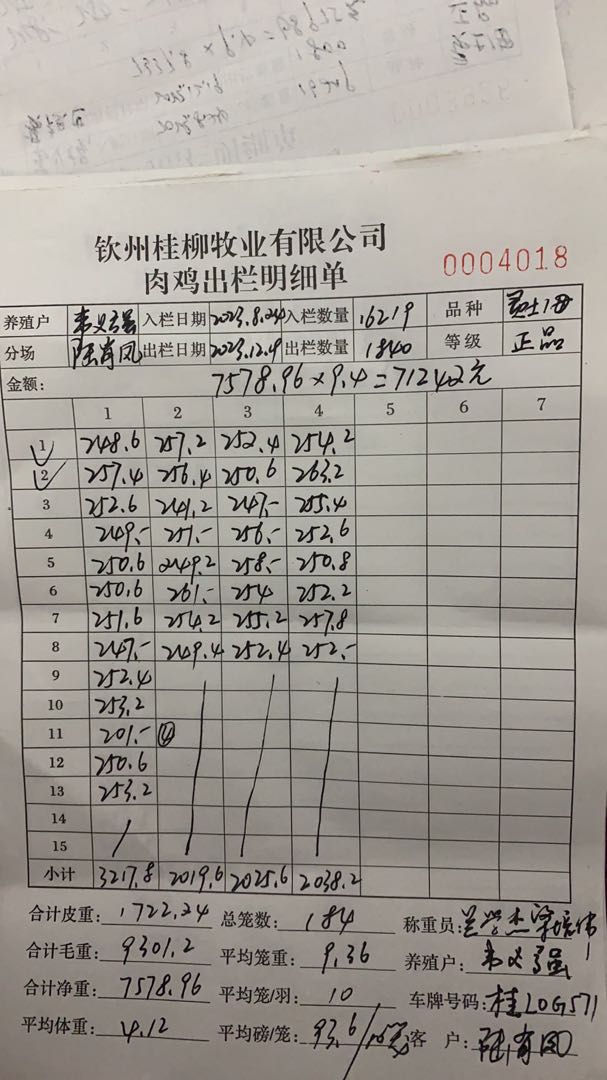 钦州桂柳牧业有限公司
肉鸡出栏明细单
0004018
养殖户 入栏日期 2023.8.24 入栏数量 16219 品种
分场 陆肖凤 出栏日期 2023.12.9 出栏数量 1840 等级 正品
金额: 7578.96×9.4=71242元
1 2 3 4 5 6 7
1 248.6 257.2 252.4 254.2
2 257.4 256.4 250.6 263.2
3 252.6 241.2 247.- 255.4
4 249.- 251.- 256.- 252.6
5 250.6 249.2 258.- 250.8
6 250.6 261.- 254 252.2
7 251.6 254.2 255.2 257.8
8 247.- 249.4 252.4 252.-
9 252.4
10 253.2
11 201.- ④
12 250.6
13 253.2
14
15
小计 3217.8 2019.6 2025.6 2038.2
合计皮重: 1722.24 总笼数: 184 称重员:
合计毛重: 9301.2 平均笼重: 9.36 养殖户:
合计净重: 7578.96 平均笼/羽: 10 车牌号码: 桂L0G571
平均体重: 4.12 平均磅/笼: 93.6 客户: 陆肖凤